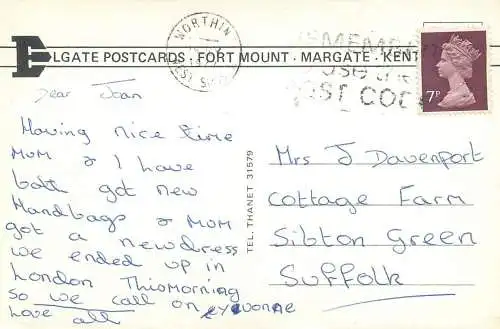 WORTHIN
WEST SU
REMEMBER
USE THE
POST CODE
7P
ELGATE POSTCARDS · FORT MOUNT · MARGATE · KENT
Dear Joan
Having nice time
MUM & I have
both got new
Handbags & MUM
got a newdress
we ended up in
London Thismorning
so we call on yvonne
Love all
TEL. THANET 31579
Mrs J Davenport
Cottage Farm
Sibton Green
Suffolk